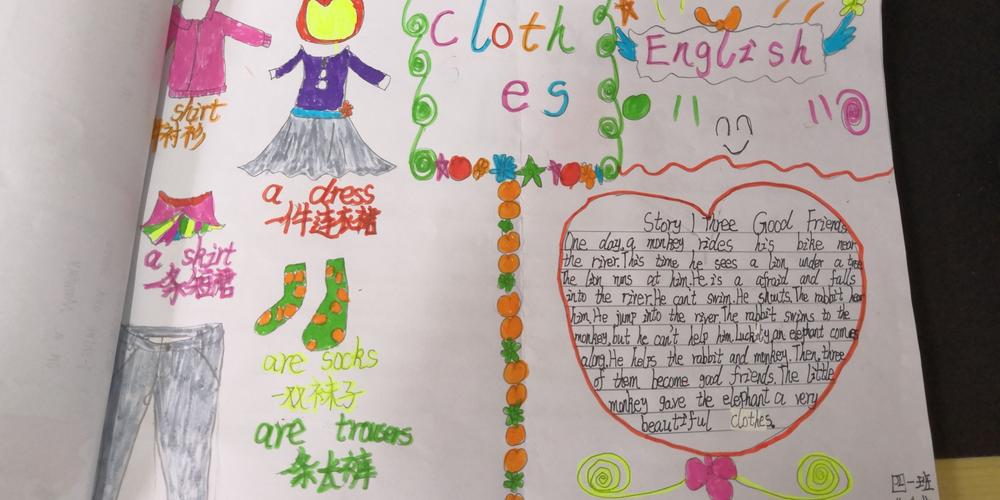 shirt
衬衫
a dress
一件连衣裙
a shirt
一条短裙
are socks
一双袜子
are trousers
条长裤
Cloth
es
English
Story 1 Three Good Friends
One day, a monkey rides his bike near
the river. This time he sees a lion under a tree
The lion runs at him. He is a afraid and falls
into the river. He can't swim. He shouts. The rabbit hear
him. He jump into the river. The rabbit swims to the
monkey, but he can't help him. Luckily an elephant comes
along. He helps the rabbit and monkey. Then, three
of them become good friends. The little
monkey gave the elephant a very
beautiful clothes.
四一班